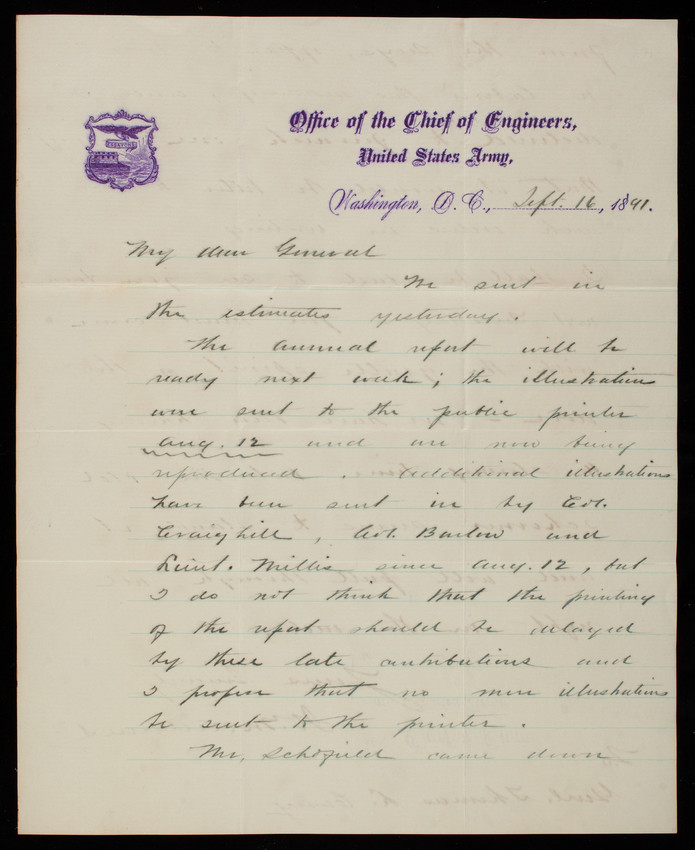 ESSAYONS
Office of the Chief of Engineers,
United States Army,
Washington, D. C., Sept. 16, 1891.
My dear General
We sent in
the estimates yesterday.
The annual report will be
ready next week; the illustrations
were sent to the public printer
Aug. 12 and are now being
reproduced. Additional illustrations
have been sent in by Col.
Craighill, Col. Barlow and
Lieut. Millis since Aug. 12, but
I do not think that the printing
of the report should be delayed
by these late contributions and
I propose that no more illustrations
be sent to the printer.
Mr. Schofield came down